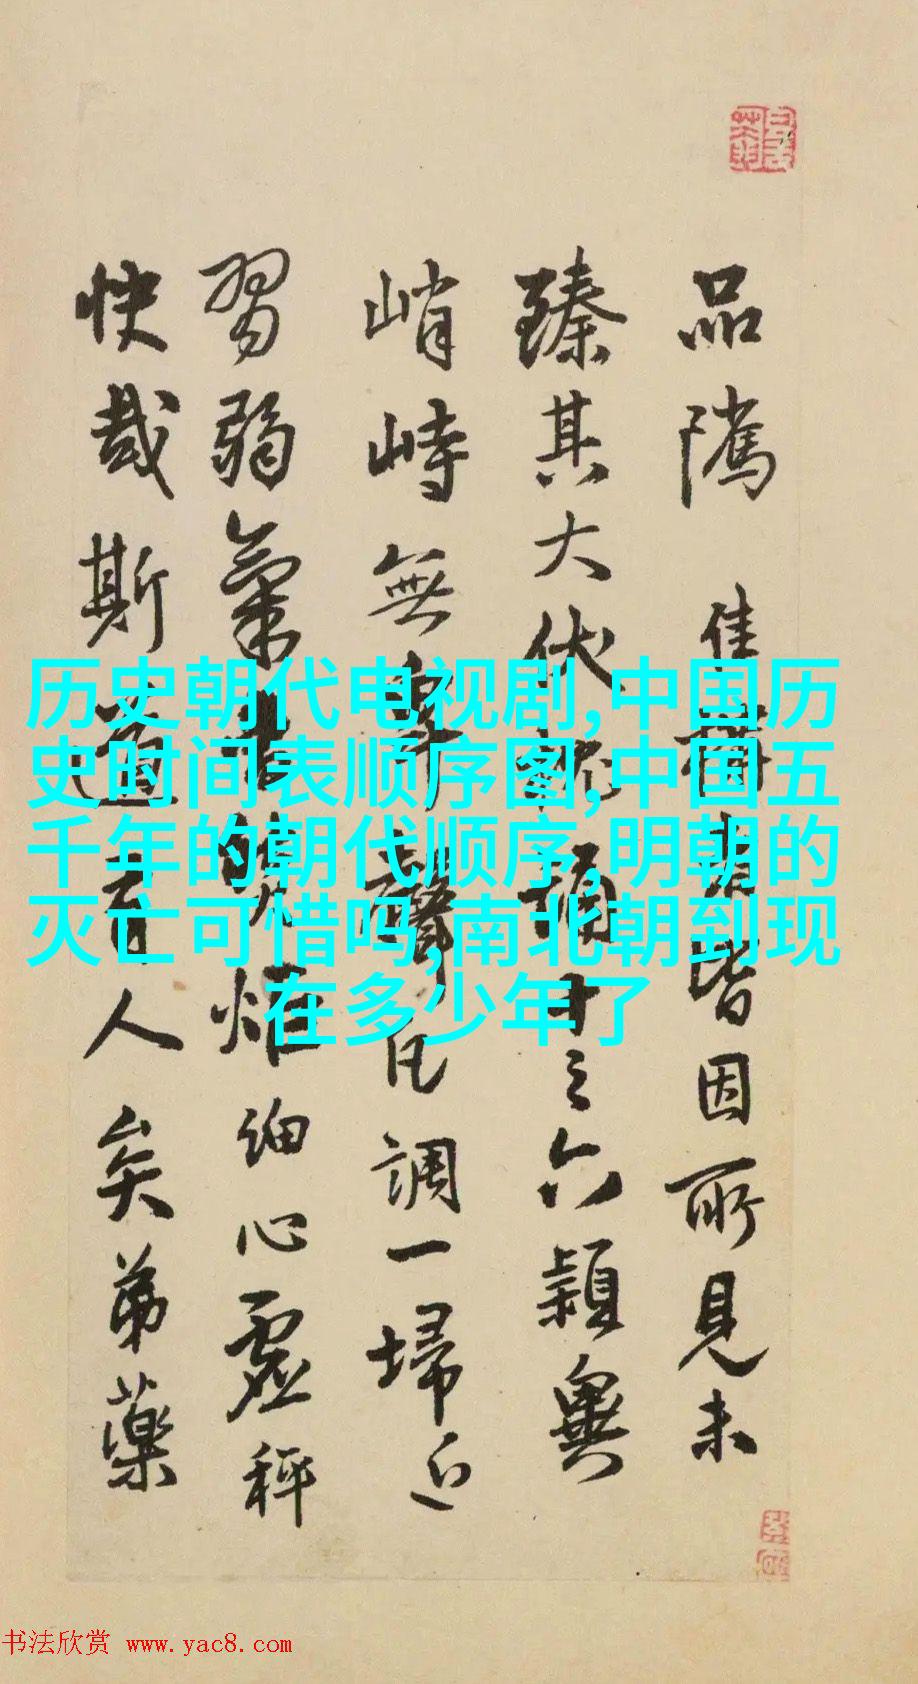 品隲佳皆因所見未
臻其大伏誦十之六穎異
峭峙無聲凡調一埽近
習弱氣細心虛秤
快哉斯道有人矣弟藥
历史朝代电视剧,中国历
史时间表顺序图,中国五
千年的朝代顺序,明朝的
灭亡可惜吗,南北朝到现
在多少年了
书法欣赏 www.yac8.com